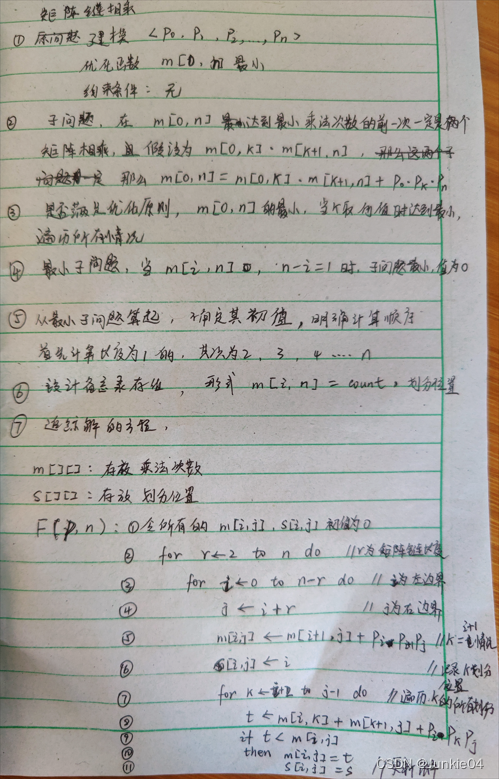 矩阵链相乘
① 原问题建模 <P0, P1, P2, ..., Pn>
优化函数 m[0, n] 最小
约束条件: 无
② 子问题, 在 m[0,n] 达到最小乘法次数的前一次一定是两个
矩阵相乘, 且假设为 m[0,K]·m[K+1,n],
那么 m[0,n] = m[0,K]·m[K+1,n] + P0·PK·Pn
③ 是否满足优化原则, m[0,n] 的最小, 当K取何值时达到最小,
遍历所有情况
④ 最小子问题, 当 m[i,n], n-i=1 时, 子问题最小, 值为0
⑤ 从最小子问题算起, 确定其初值, 明确计算顺序
首先计算长度为1的, 其次为2, 3, 4 ···· n
⑥ 设计备忘录存值, 形式 m[i,n] = count, 划分位置
⑦ 追踪解的方程,
m[][]: 存放乘法次数
S[][]: 存放划分位置
F(P,n): ① 令所有的 m[i,j], s[i,j] 初值为0
② for r←2 to n do //r为矩阵链长度
③ for i←0 to n-r do // i为左边界
④ j←i+r // j为右边界
⑤ m[i,j]←m[i+1,j]+Pi·Pi+1Pj //K=i+1情况
⑥ s[i,j]←i //记录K划分位置
⑦ for k← to j-1 do //遍历K的所有划分
⑧ t←m[i,K]+m[K+1,j]+Pi·PKPj
⑨ if t<m[i,j]
⑩ then m[i,j]=t
⑪ s[i,j]=s
CSDN @Junkie04